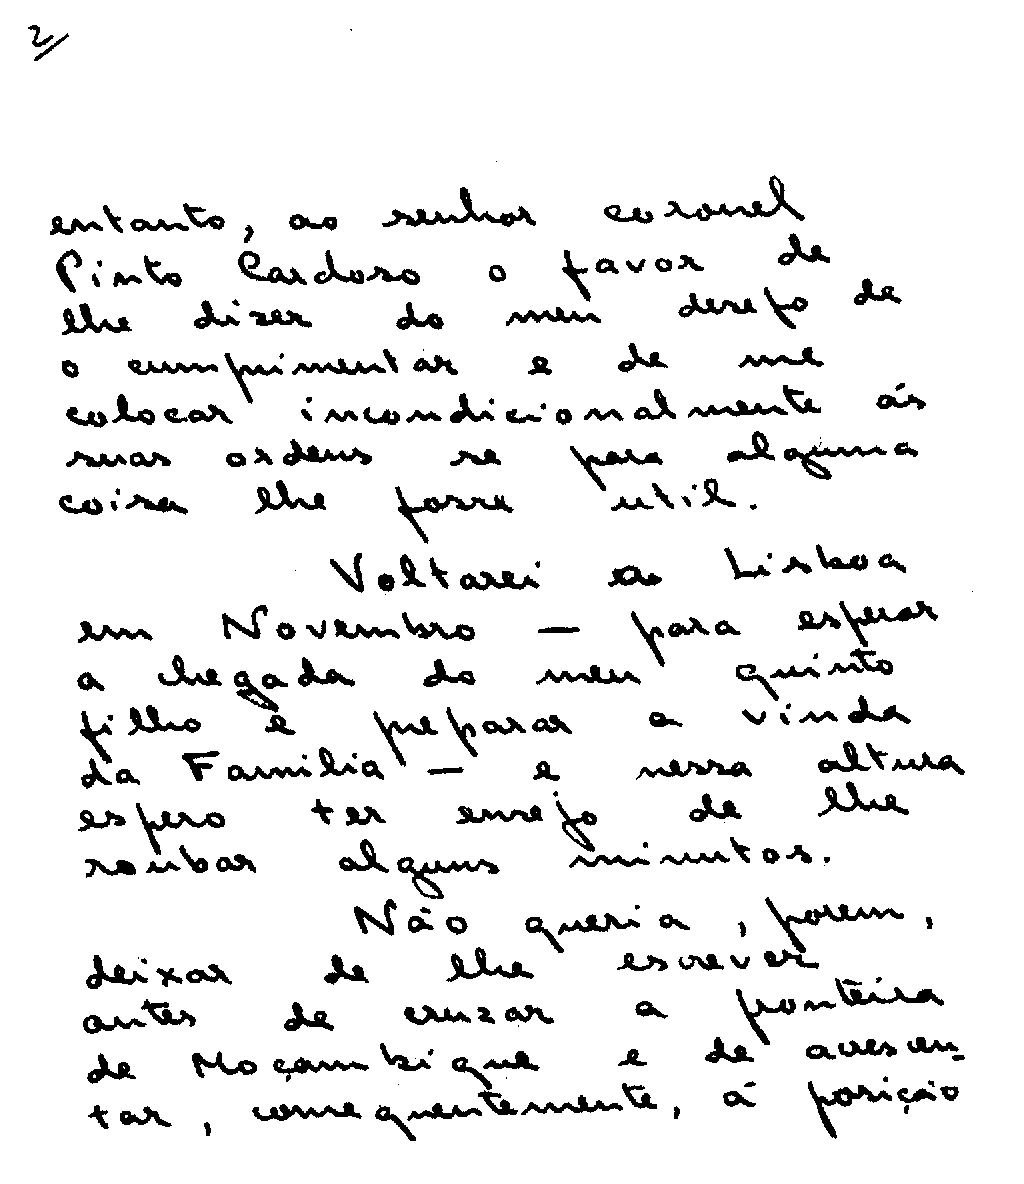 2
entanto, ao senhor coronel
Pinto Cardoso o favor de
lhe dizer do meu desejo de
o cumprimentar e de me
colocar incondicionalmente ás
suas ordens se para alguma
coisa lhe fosse util.
Voltarei a Lisboa
em Novembro — para esperar
a chegada do meu quinto
filho e preparar a vinda
da Familia — e nessa altura
espero ter ensejo de lhe
roubar alguns minutos.
Não queria, porem,
deixar de lhe escrever
antes de cruzar a fronteira
de Moçambique e de acrescen-
tar, consequentemente, á posição